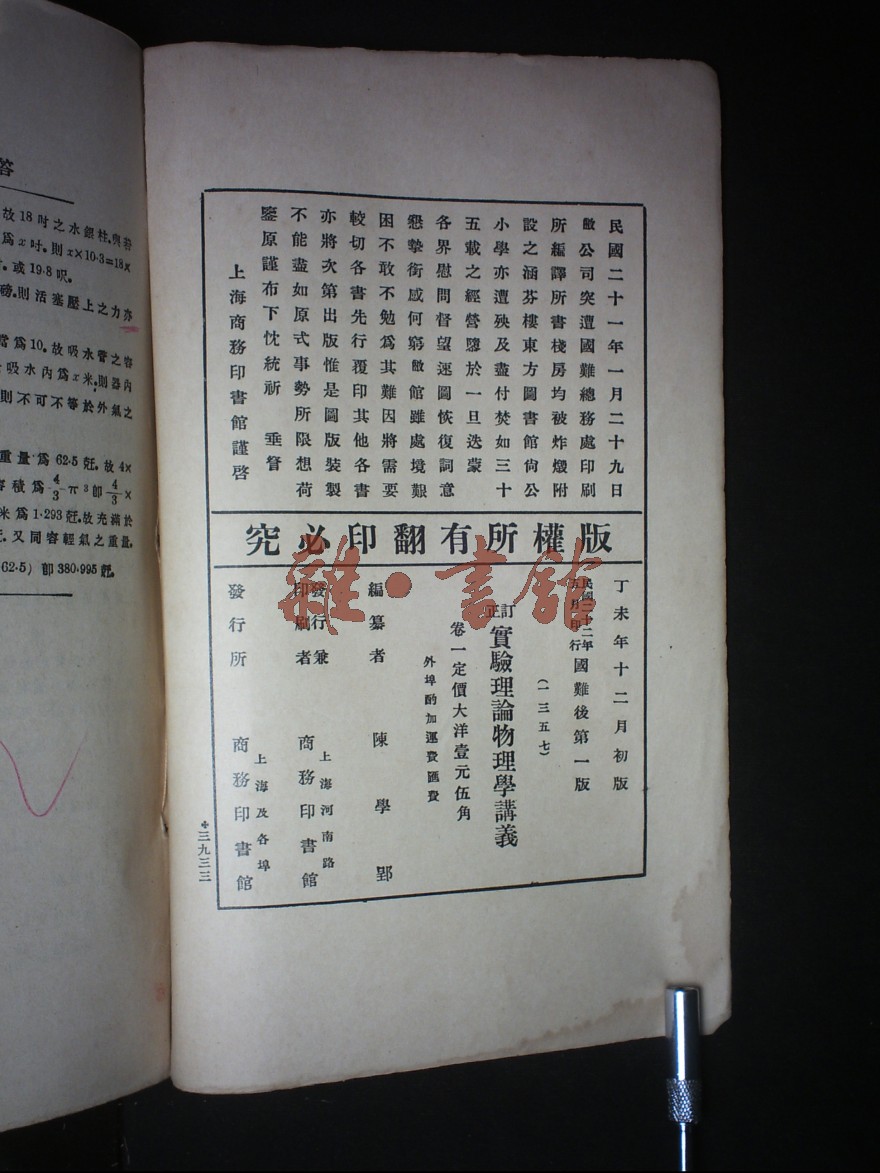 民國二十一年一月二十九日
敝公司突遭國難總務處印刷
所編譯所書棧房均被炸燬附
設之涵芬樓東方圖書館尙公
小學亦遭殃及盡付焚如三十
五載之經營隳於一旦迭蒙
各界慰問督望速圖恢復詞意
懇摯銜感何窮敝館雖處境艱
困不敢不勉爲其難因將需要
較切各書先行覆印其他各書
亦將次第出版惟是圖版裝製
不能盡如原式事勢所限想荷
鑒原謹布下忱統祈 垂詧
上海商務印書館謹啓
版權所有翻印必究
丁未年十二月初版
民國二十二年五月印行國難後第一版
(一三五七)
訂正實驗理論物理學講義
卷一定價大洋壹元伍角
外埠酌加運費匯費
編纂者 陳學郢
發行兼印刷者 上海河南路 商務印書館
發行所 上海及各埠 商務印書館
*三九三三
雜·書館
答
故18吋之水銀柱,與若
爲x吋,則x×10·3=18×
或19·8呎。
磅,則活塞壓上之力亦
當爲10。故吸水管之容
吸水內爲x米,則器內
則不可不等於外氣之
重量爲62·5兛。故4×
容積爲4/3π³卽4/3×
米爲1·293兛。故充滿於
又同容輕氣之重量,
62·5)卽380·995兛。